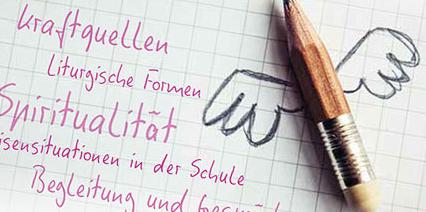 Kraftquellen
Liturgische Formen
Spiritualität
isensituationen in der Schule
Begleitung und